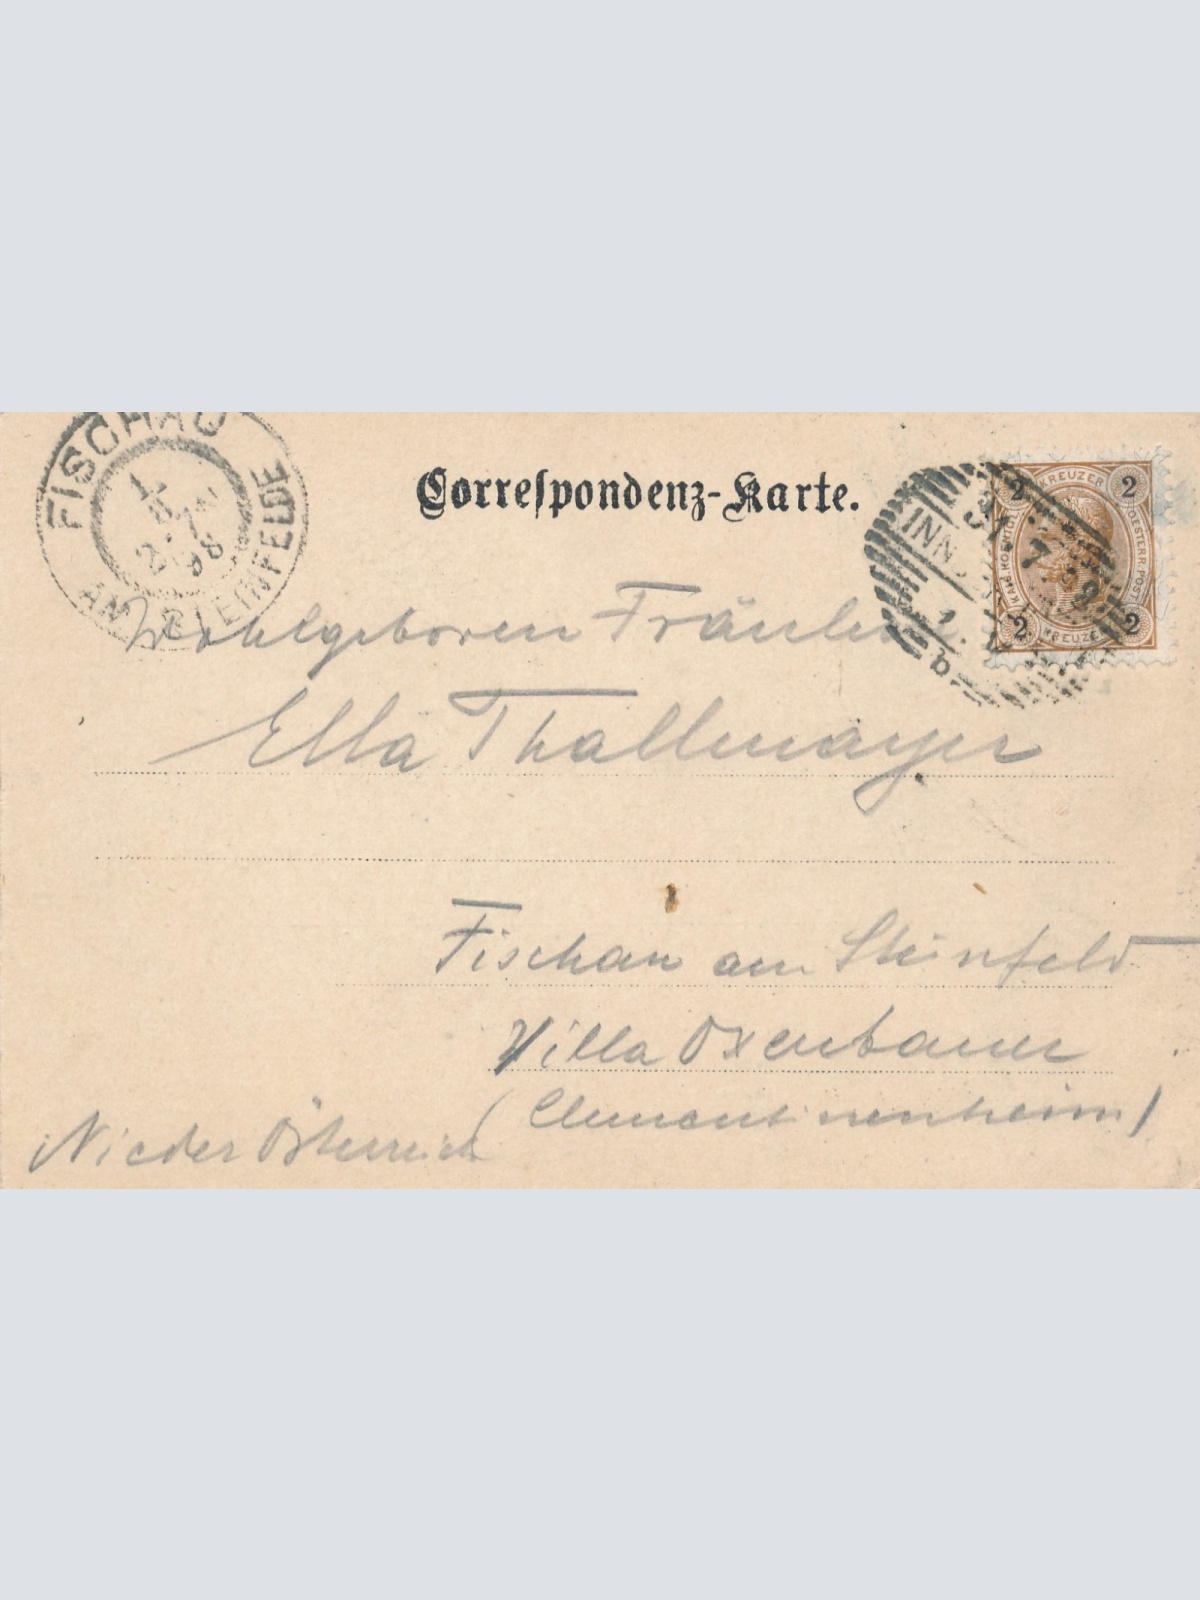 FISCHAU
AM STEINFELDE
Correspondenz-Karte.
INN
31. 7. 98
b
KREUZER
2 2
KAIS. KOENIGL. OESTERR. POST
2 2
KREUZER
Wohlgeboren Fräulein
Ella Thallmayer
Fischau am Steinfeld
Villa Oxenbauer
(Clementinenheim)
Nieder Österreich